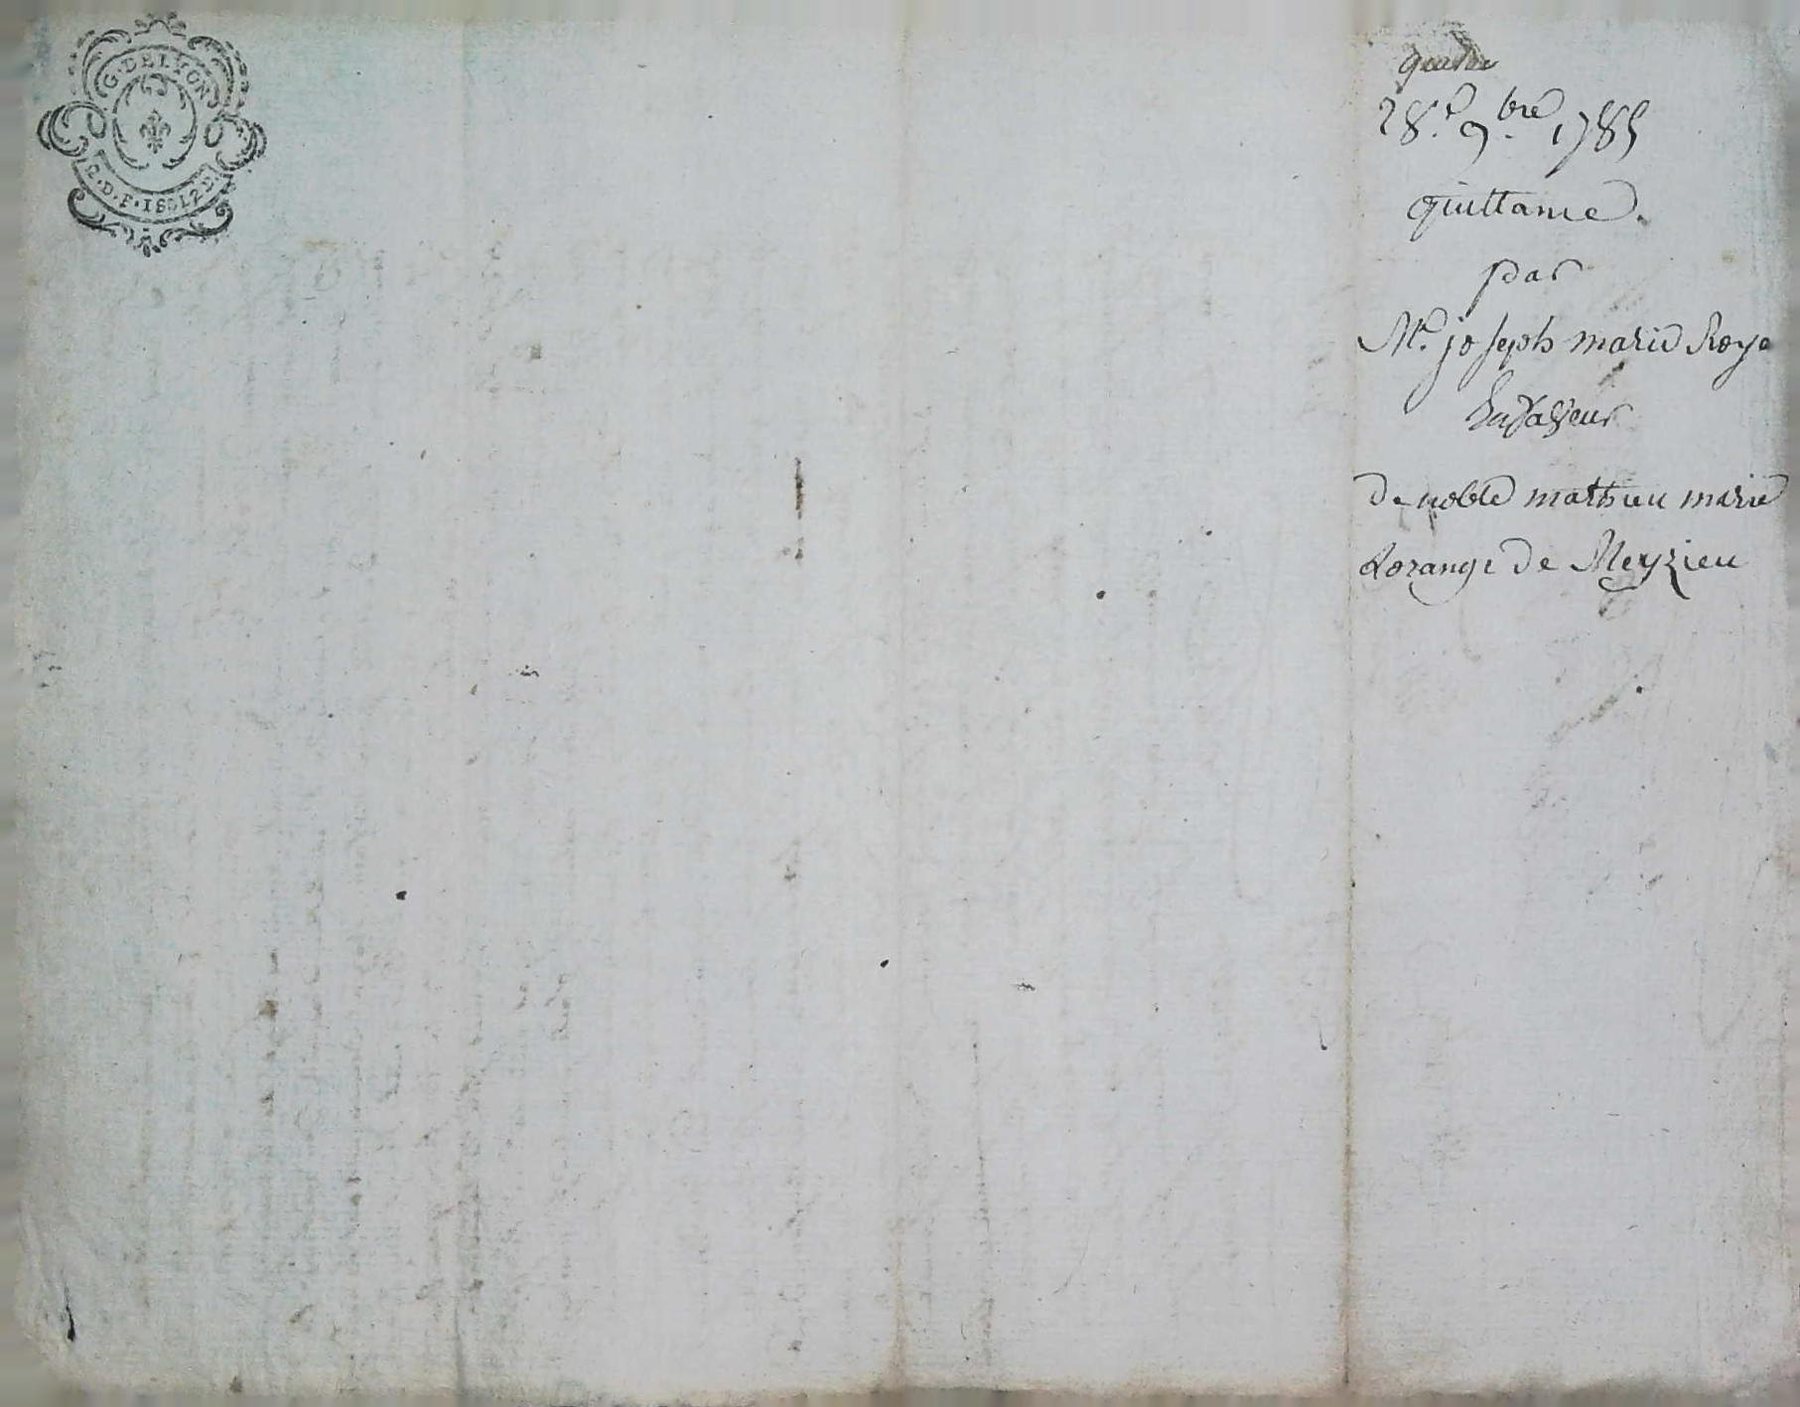 G. DE LYON
2. D. F. 18 S. L 2 D.
28.e 9.bre 1785
quittance.
par
Mr. joseph marie Roya
En faveur
De noble mathieu marie
Lorange De Meyzieu